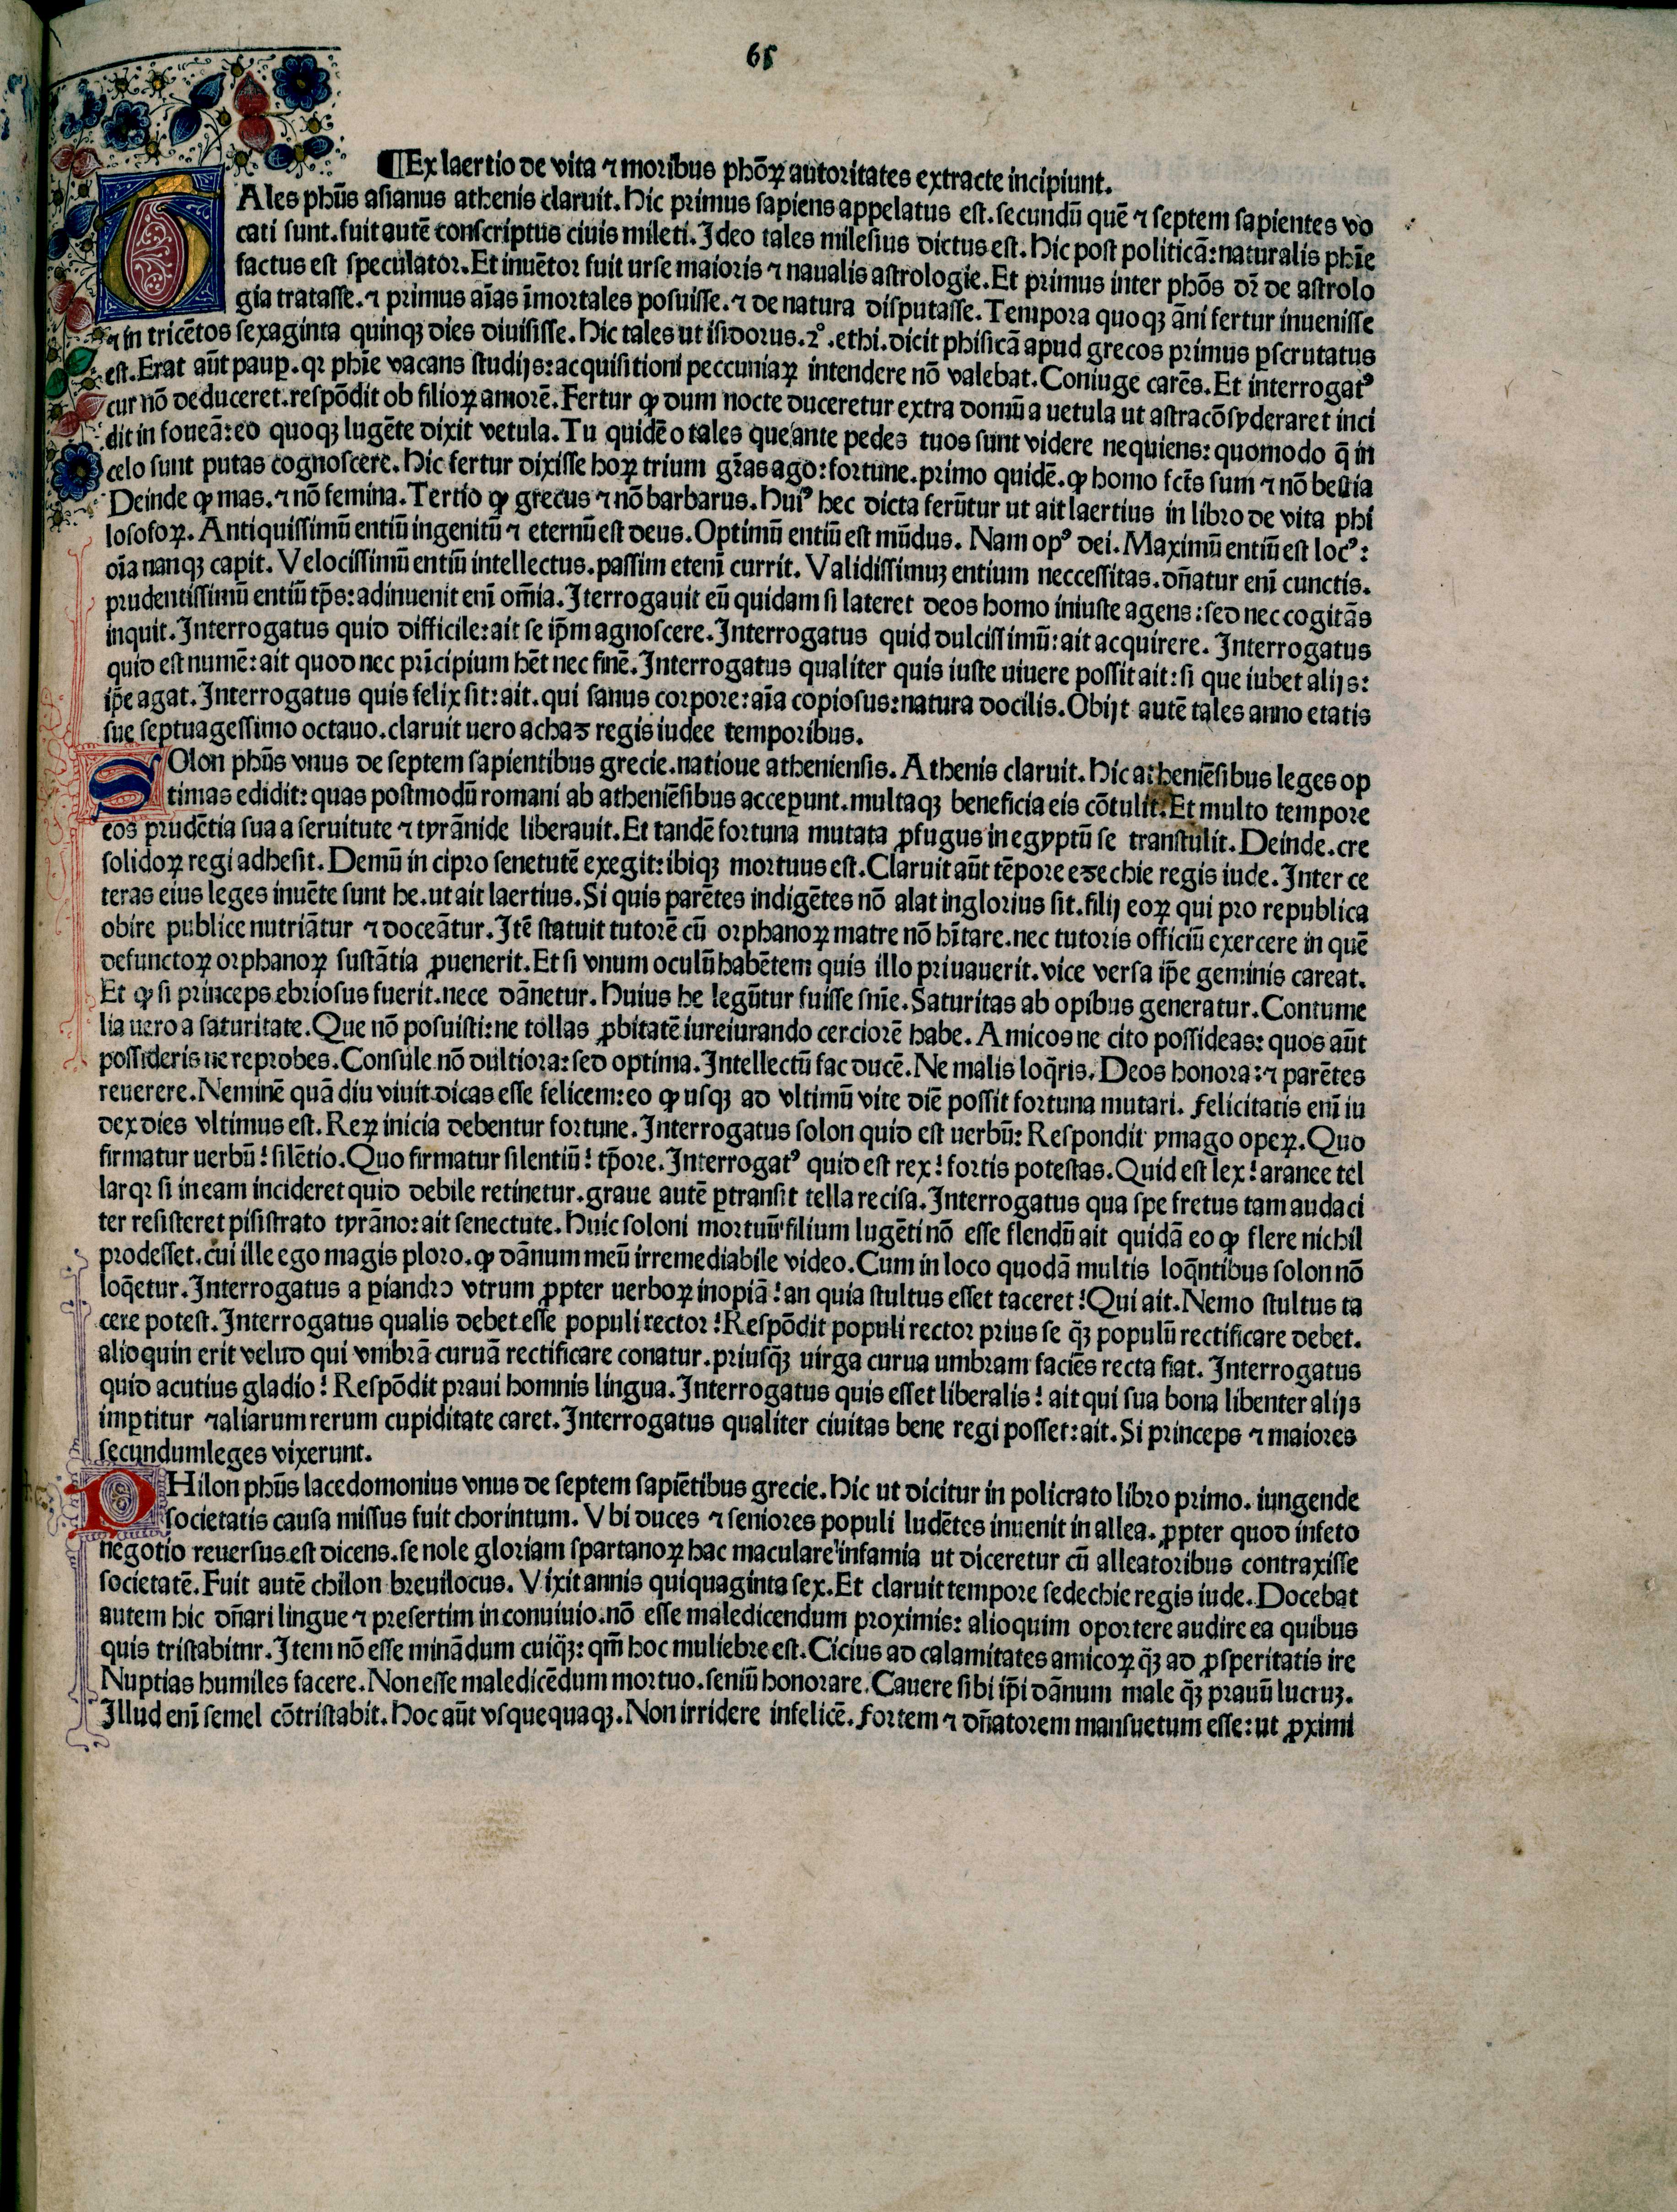 65
¶Ex laertio de vita ⁊ moribus phõꝝ autoritates extracte incipiunt.
TAles phũs asianus athenis claruit. Hic primus sapiens appelatus est. secundũ quẽ ⁊ septem sapientes vo
cati sunt. fuit autẽ conscriptus ciuis mileti. Ideo tales milesius dictus est. Hic post politicã: naturalis phĩe
factus est speculator. Et inuẽtor fuit urse maioris ⁊ naualis astrologie. Et primus inter phõs dr̃ de astrolo
gia tratasse. ⁊ primus aĩas ĩmortales posuisse. ⁊ de natura disputasse. Tempora quoqꝫ ãni fertur inuenisse
⁊ in tricẽtos sexaginta quinqꝫ dies diuisisse. Hic tales ut isidorus. 2°. ethi. dicit phisicã apud grecos primus ꝑscrutatus
est. Erat aũt pauꝑ. qꝛ phĩe vacans studijs: acquisitioni peccuniaꝝ intendere nõ valebat. Coniuge carẽs. Et interrogatꝰ
cur nõ deduceret. respõdit ob filioꝝ amorẽ. Fertur ꝙ dum nocte duceretur extra domũ a uetula ut astra cõsyderaret inci
dit in foueã: eo quoqꝫ lugẽte dixit vetula. Tu quidẽ o tales que ante pedes tuos sunt videre nequiens: quomodo q̃ in
celo sunt putas cognoscere. Hic fertur dixisse hoꝝ trium gr̃as ago: fortune. primo quidẽ. ꝙ homo fct̃s sum ⁊ nõ bestia
Deinde ꝙ mas. ⁊ nõ femina. Tertio ꝙ grecus ⁊ nõ barbarus. Huiꝰ hec dicta ferũtur ut ait laertius in libro de vita phi
losofoꝝ. Antiquissimũ entiũ ingenitũ ⁊ eternũ est deus. Optimũ entiũ est mũdus. Nam opꝰ dei. Maximũ entiũ est locꝰ:
oĩa nanqꝫ capit. Velocissimũ entiũ intellectus. passim etenĩ currit. Validissimuꝫ entium neccessitas. dñatur enĩ cunctis.
prudentissimũ entiũ tp̃s: adinuenit enĩ om̃ia. Iterrogauit eũ quidam si lateret deos homo iniuste agens: sed nec cogitãs
inquit. Interrogatus quid difficile: ait se ip̃m agnoscere. Interrogatus quid dulcissimũ: ait acquirere. Interrogatus
quid est numẽ: ait quod nec prĩcipium hẽt nec finẽ. Interrogatus qualiter quis iuste uiuere possit ait: si que iubet alijs:
ip̃e agat. Interrogatus quis felix sit: ait. qui sanus corpore: aĩa copiosus: natura docilis. Obijt autẽ tales anno etatis
sue septuagessimo octauo. claruit uero achaz regis iudee temporibus.
SOlon phũs vnus de septem sapientibus grecie. natioue atheniensis. Athenis claruit. Hic atheniẽsibus leges op
timas edidit: quas postmodũ romani ab atheniẽsibus acceꝑunt. multaqꝫ beneficia eis cõtulit. Et multo tempore
eos prudẽtia sua a seruitute ⁊ tyrãnide liberauit. Et tandẽ fortuna mutata ꝓfugus in egyptũ se transtulit. Deinde. cre
solidoꝝ regi adhesit. Demũ in cipro senetutẽ exegit: ibiqꝫ mortuus est. Claruit aũt tẽpore ezechie regis iude. Inter ce
teras eius leges inuẽte sunt he. ut ait laertius. Si quis parẽtes indigẽtes nõ alat inglorius sit. filij eoꝝ qui pro republica
obire publice nutriãtur ⁊ doceãtur. Itẽ statuit tutorẽ cũ orphanoꝝ matre nõ hĩtare. nec tutoris officiũ exercere in quẽ
defunctoꝝ orphanoꝝ sustãtia ꝓuenerit. Et si vnum oculũ habẽtem quis illo priuauerit. vice versa ip̃e geminis careat.
Et ꝙ si princeps ebriosus fuerit. nece dãnetur. Huius he legũtur fuisse snĩe. Saturitas ab opibus generatur. Contume
lia uero a saturitate. Que nõ posuisti: ne tollas ꝓbitatẽ iureiurando cerciorẽ habe. Amicos ne cito possideas: quos aũt
possideris ne reprobes. Consule nõ dultiora: sed optima. Intellectũ fac ducẽ. Ne malis loq̃ris. Deos honora: ⁊ parẽtes
reuerere. Neminẽ quã diu viuit dicas esse felicem: eo ꝙ usqꝫ ad vltimũ vite diẽ possit fortuna mutari. Felicitatis enĩ iu
dex dies vltimus est. Reꝝ inicia debentur fortune. Interrogatus solon quid est uerbũ: Respondit ymago opeꝝ. Quo
firmatur uerbũ? silẽtio. Quo firmatur silentiũ? tp̃ore. Interrogatꝰ quid est rex? fortis potestas. Quid est lex? aranee tel
la: qꝛ si in eam incideret quid debile retinetur. graue autẽ ꝑtransit tella recisa. Interrogatus qua spe fretus tam audaci
ter resisteret pisistrato tyrãno: ait senectute. Huic soloni mortuũ filium lugẽti nõ esse flendũ ait quidã eo ꝙ flere nichil
prodesset. cui ille ego magis ploro. ꝙ dãnum meũ irremediabile video. Cum in loco quodã multis loq̃ntibus solon nõ
loq̃etur. Interrogatus a ꝑiandro vtrum ꝓpter uerboꝝ inopiã? an quia stultus esset taceret? Qui ait. Nemo stultus ta
cere potest. Interrogatus qualis debet esse populi rector? Respõdit populi rector prius se q̃ꝫ populũ rectificare debet.
alioquin erit velud qui vmbrã curuã rectificare conatur. priusq̃ꝫ uirga curua umbram faciẽs recta fiat. Interrogatus
quid acutius gladio? Respõdit praui homnis lingua. Interrogatus quis esset liberalis? ait qui sua bona libenter alijs
imꝑtitur ⁊ aliarum rerum cupiditate caret. Interrogatus qualiter ciuitas bene regi posset: ait. Si princeps ⁊ maiores
secundum leges vixerunt.
PHilon phũs lacedomonius vnus de septem sapiẽtibus grecie. Hic ut dicitur in policrato libro primo. iungende
societatis causa missus fuit chorintum. Vbi duces ⁊ seniores populi ludẽtes inuenit in allea. ꝓpter quod infeto
negotio reuersus est dicens. se nole gloriam spartanoꝝ hac maculare infamia ut diceretur cũ alleatoribus contraxisse
societatẽ. Fuit autẽ chilon breuilocus. Vixit annis quiquaginta sex. Et claruit tempore sedechie regis iude. Docebat
autem hic dñari lingue ⁊ presertim in conuiuio. nõ esse maledicendum proximis: alioquim oportere audire ea quibus
quis tristabitnr. Item nõ esse minãdum cuiq̃ꝫ: qm̃ hoc muliebre est. Cicius ad calamitates amicoꝝ q̃ꝫ ad ꝓsperitatis ire
Nuptias humiles facere. Non esse maledicẽdum mortuo. seniũ honorare. Cauere sibi ip̃i dãnum male q̃ꝫ prauũ lucruꝫ.
Illud enĩ semel cõtristabit. Hoc aũt vsquequaqꝫ. Non irridere infelicẽ. Fortem ⁊ dñatorem mansuetum esse: ut ꝓximi